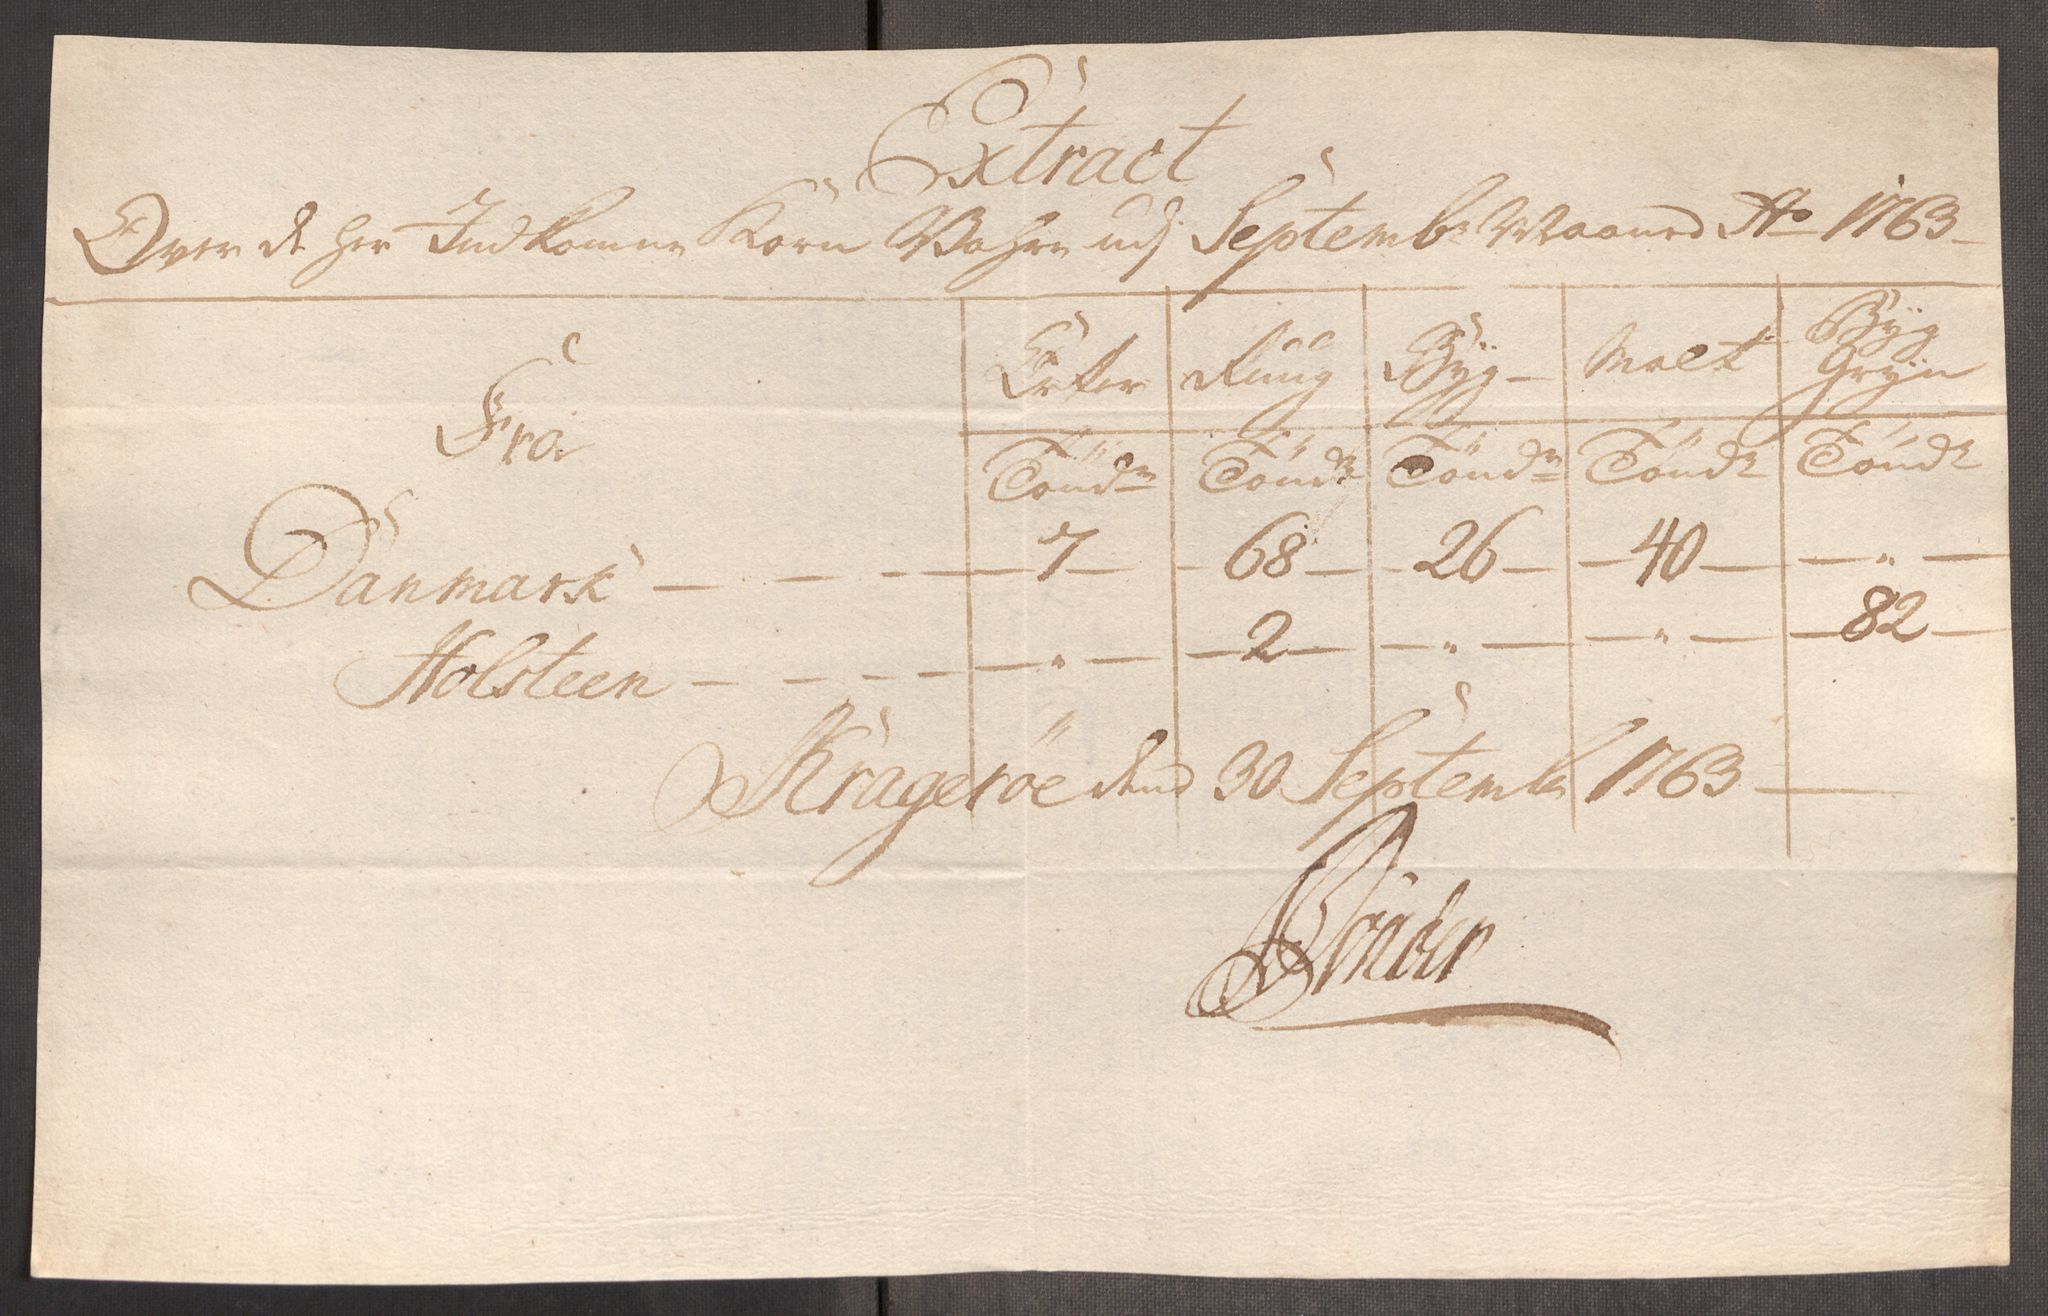 Extract
Over de her Indkomne Korn Vahre udj Septembr Maaned Ao 1763
Fra Erter Rüüg Byg Malt Byg Gryn
Tönder Tönder Tönder Tönder Tönder
Danmark — 7 68 26 40 "
Holsteen — " 2 " " 82
Krageröe dend 30 Septembr 1763